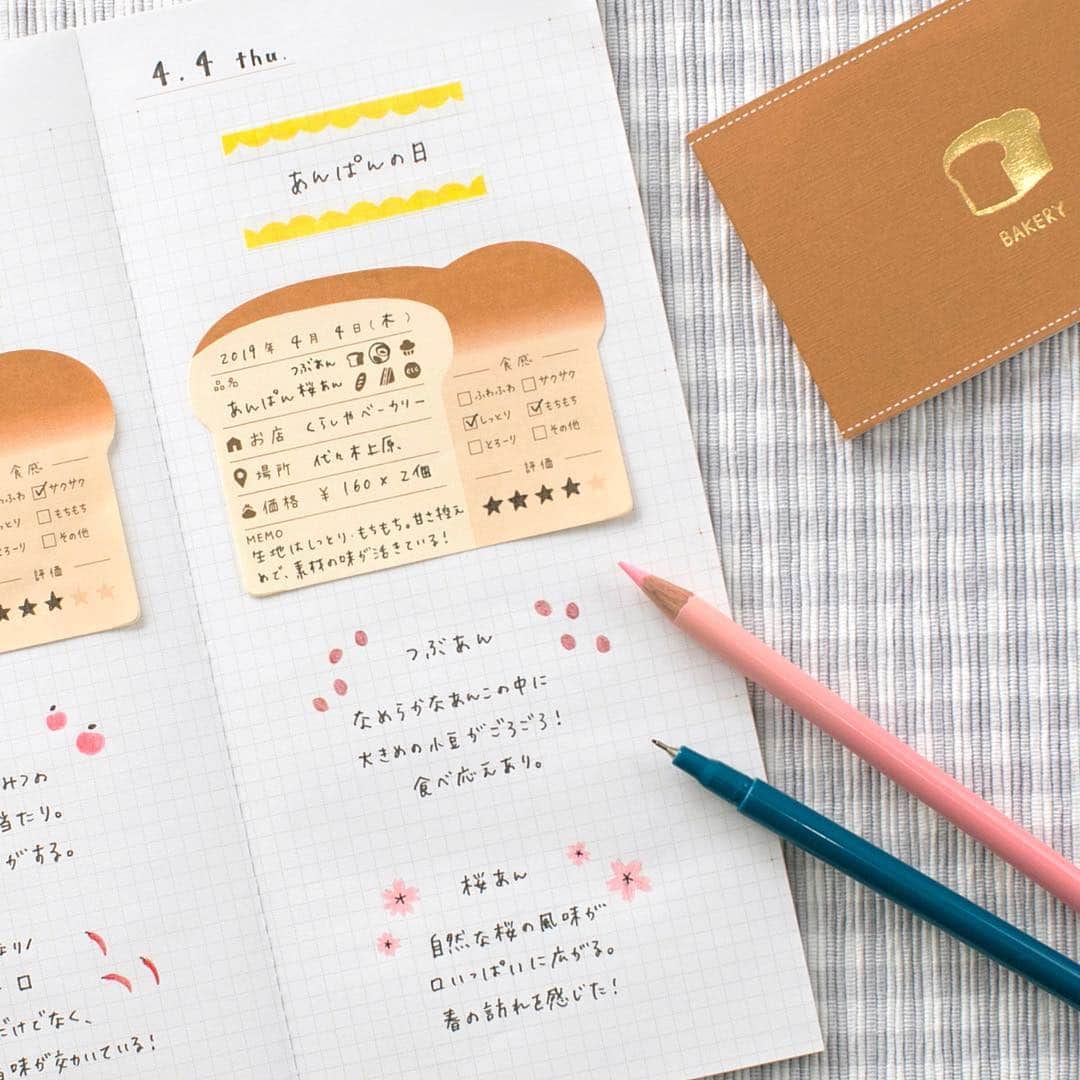 4.4 thu.
あんぱんの日
2019年 4月 4日(木)
品名 つぶあん
あんぱん 桜あん
お店 くらしやベーカリー
場所 代々木上原.
価格 ¥ 160 × 2個
MEMO
生地はしっとり・もちもち。甘さ控え
めで、素材の味が活きている!
食感
ふわふわ サクサク
しっとり もちもち
とろーり その他
評価
つぶあん
なめらかなあんこの中に
大きめの小豆がごろごろ!
食べ応えあり。
桜あん
自然な桜の風味が
口いっぱいに広がる。
春の訪れを感じた!
BAKERY
食感
サクサク
もちもち
その他
評価
みつの
当たり。
がある。
口
だけでなく、
味が効いている!